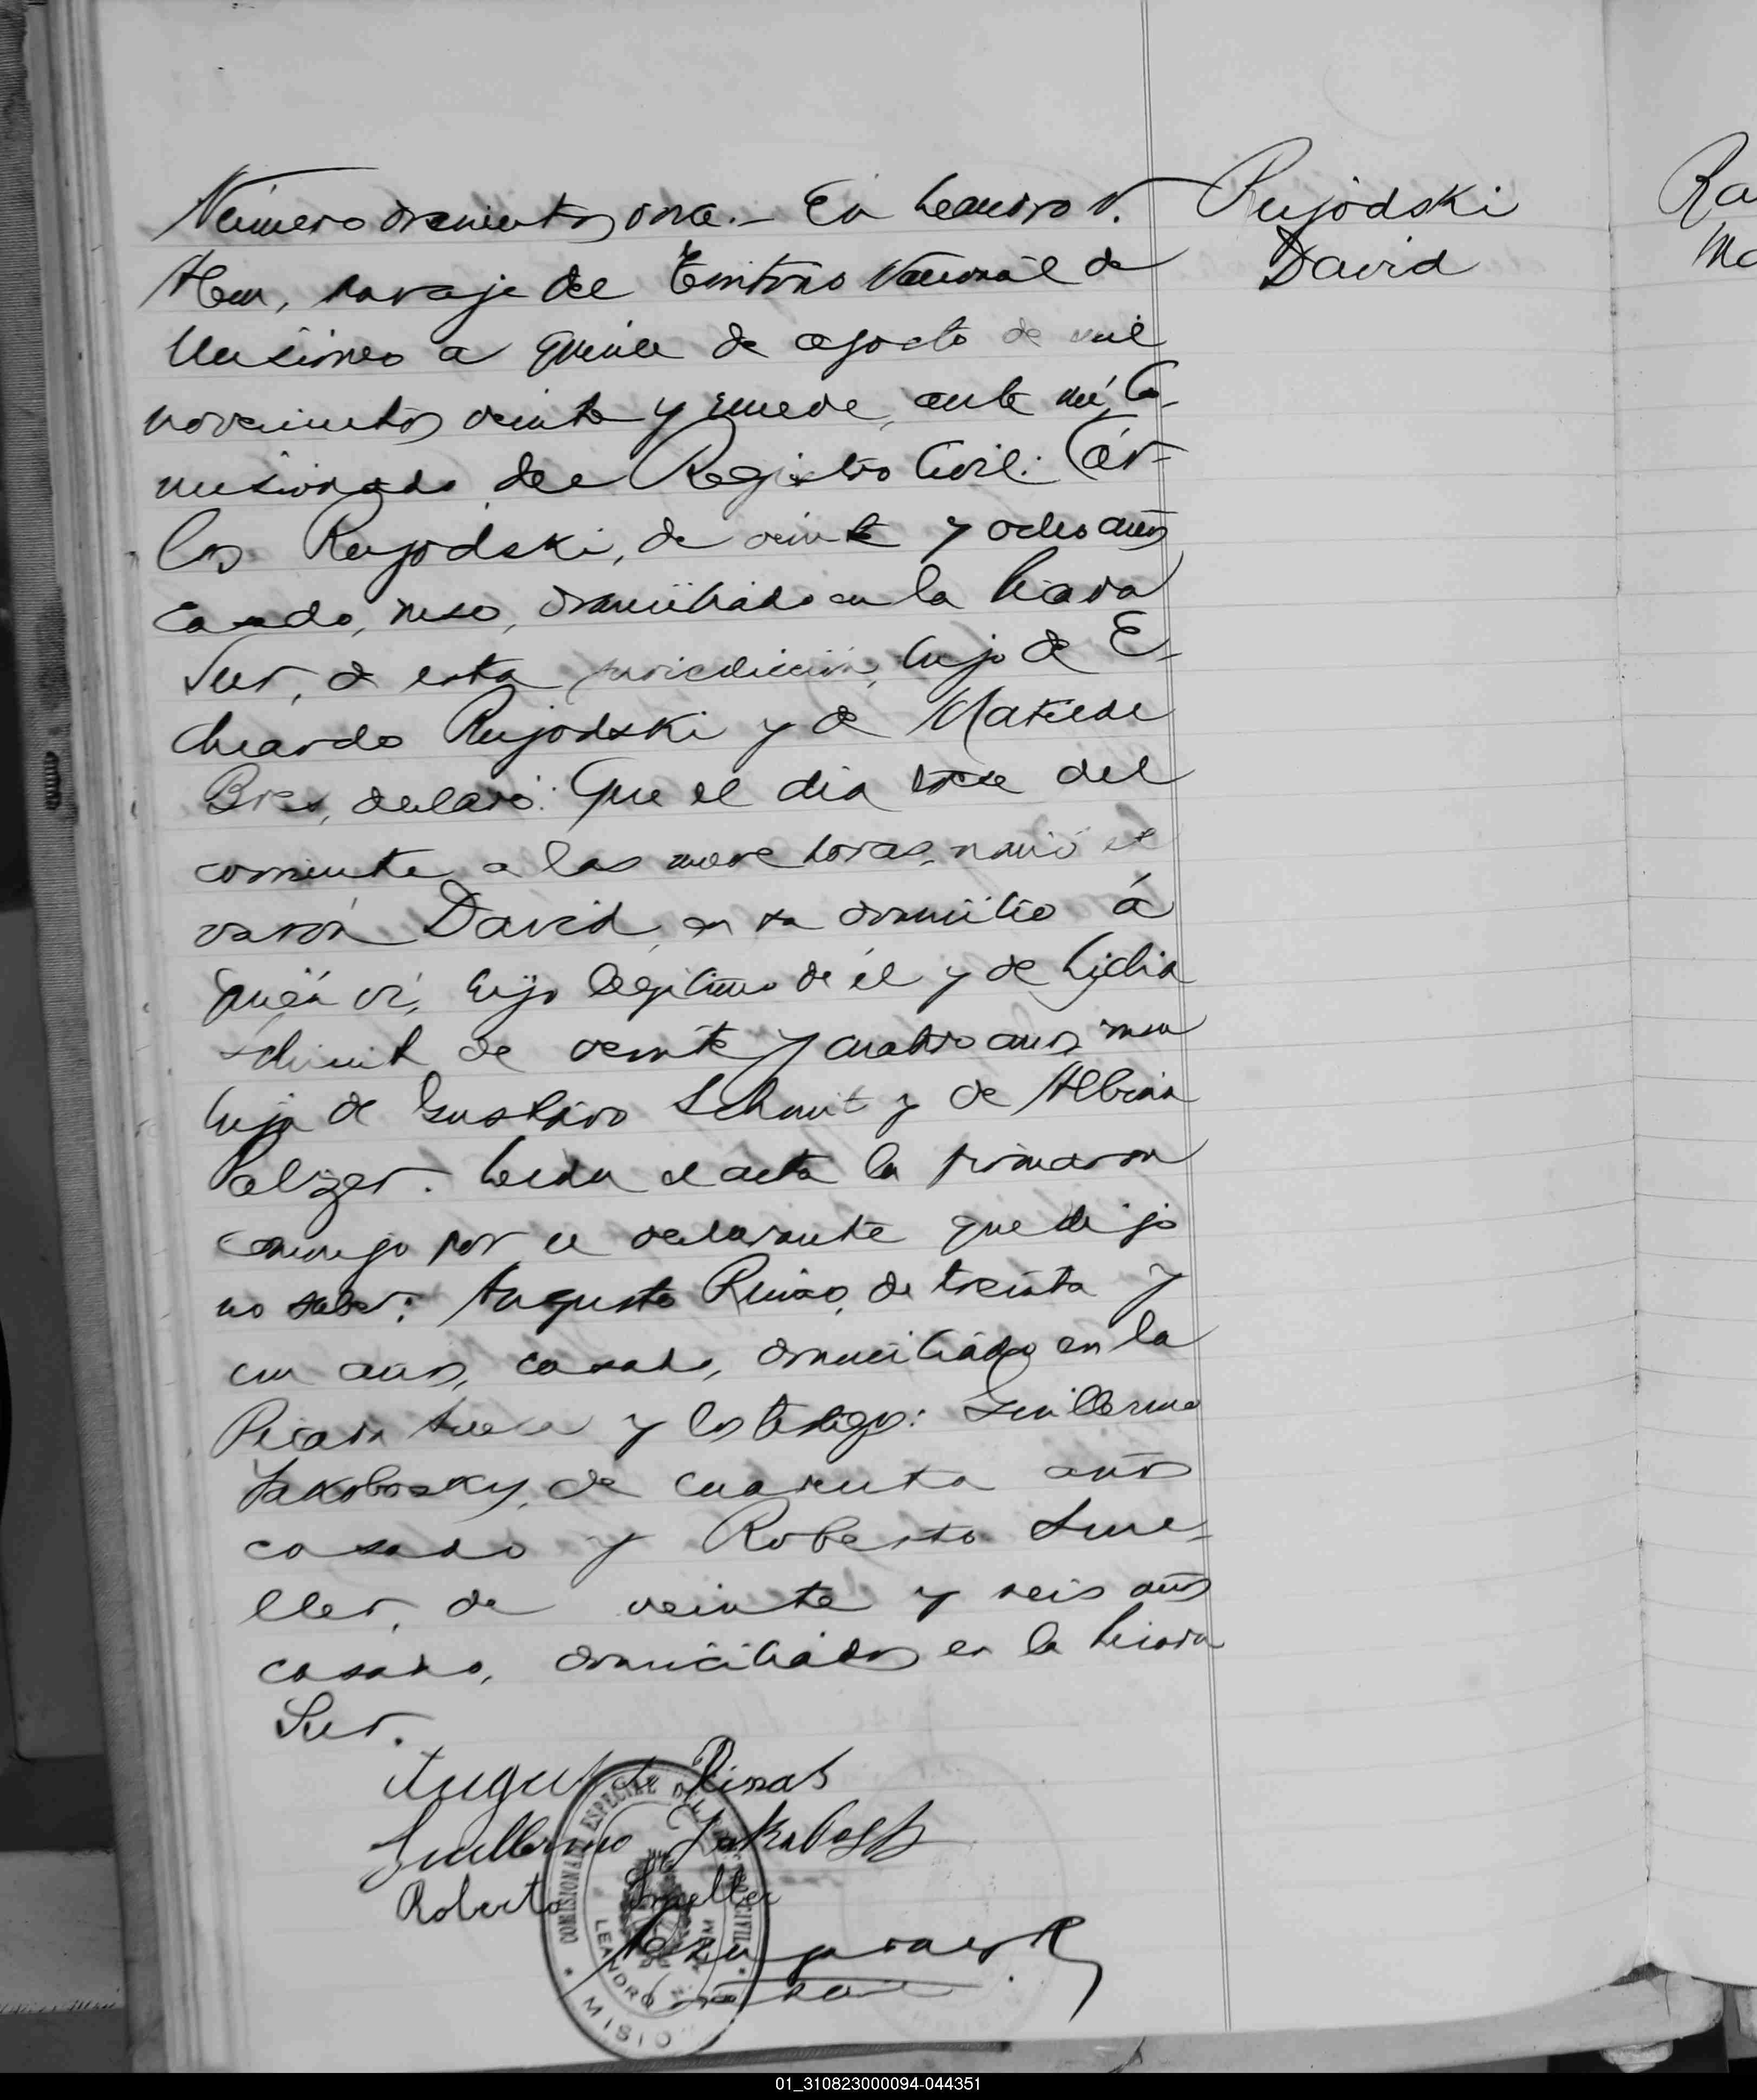 Número doscientos once.- En Leandro N.
Alem, paraje del Territorio Nacional de
Misiones a quince de agosto de mil
novecientos veinte y nueve, ante mí, Co-
misionado del Registro Civil: Cár-
los Rujodski, de veinte y ocho años
casado, ruso, domiciliado en la Picada
Sur, de esta jurisdicción, hijo de E-
duardo Rujodski y de Matilde
declaró: Que el día doce del
corriente a las nueve horas, nació el
varón David, en su domicilio á
quién ví, hijo legítimo de él y de Lidia
Schmit de veinte y cuatro años, rusa
hija de Gustavo Schmit y de Albina
Palzer. Leida el acta la firmaron
conmigo por el declarante que dijo
no saber: Augusto de treinta y
un años, casado, domiciliado en la
Picada y los testigos: Guillermo
Jakobosky, de cuarenta años
casado y Roberto Smue-
ller, de veinte y seis años
casado, domiciliados en la Picada
Sur.
Rujodski
David
Ra
Ma
August Rinas
Guillermo
Roberto
COMISIONADO ESPECIAL DEL REGISTRO CIVIL
LEANDRO N. ALEM
MISIO
01_310823000094-044351